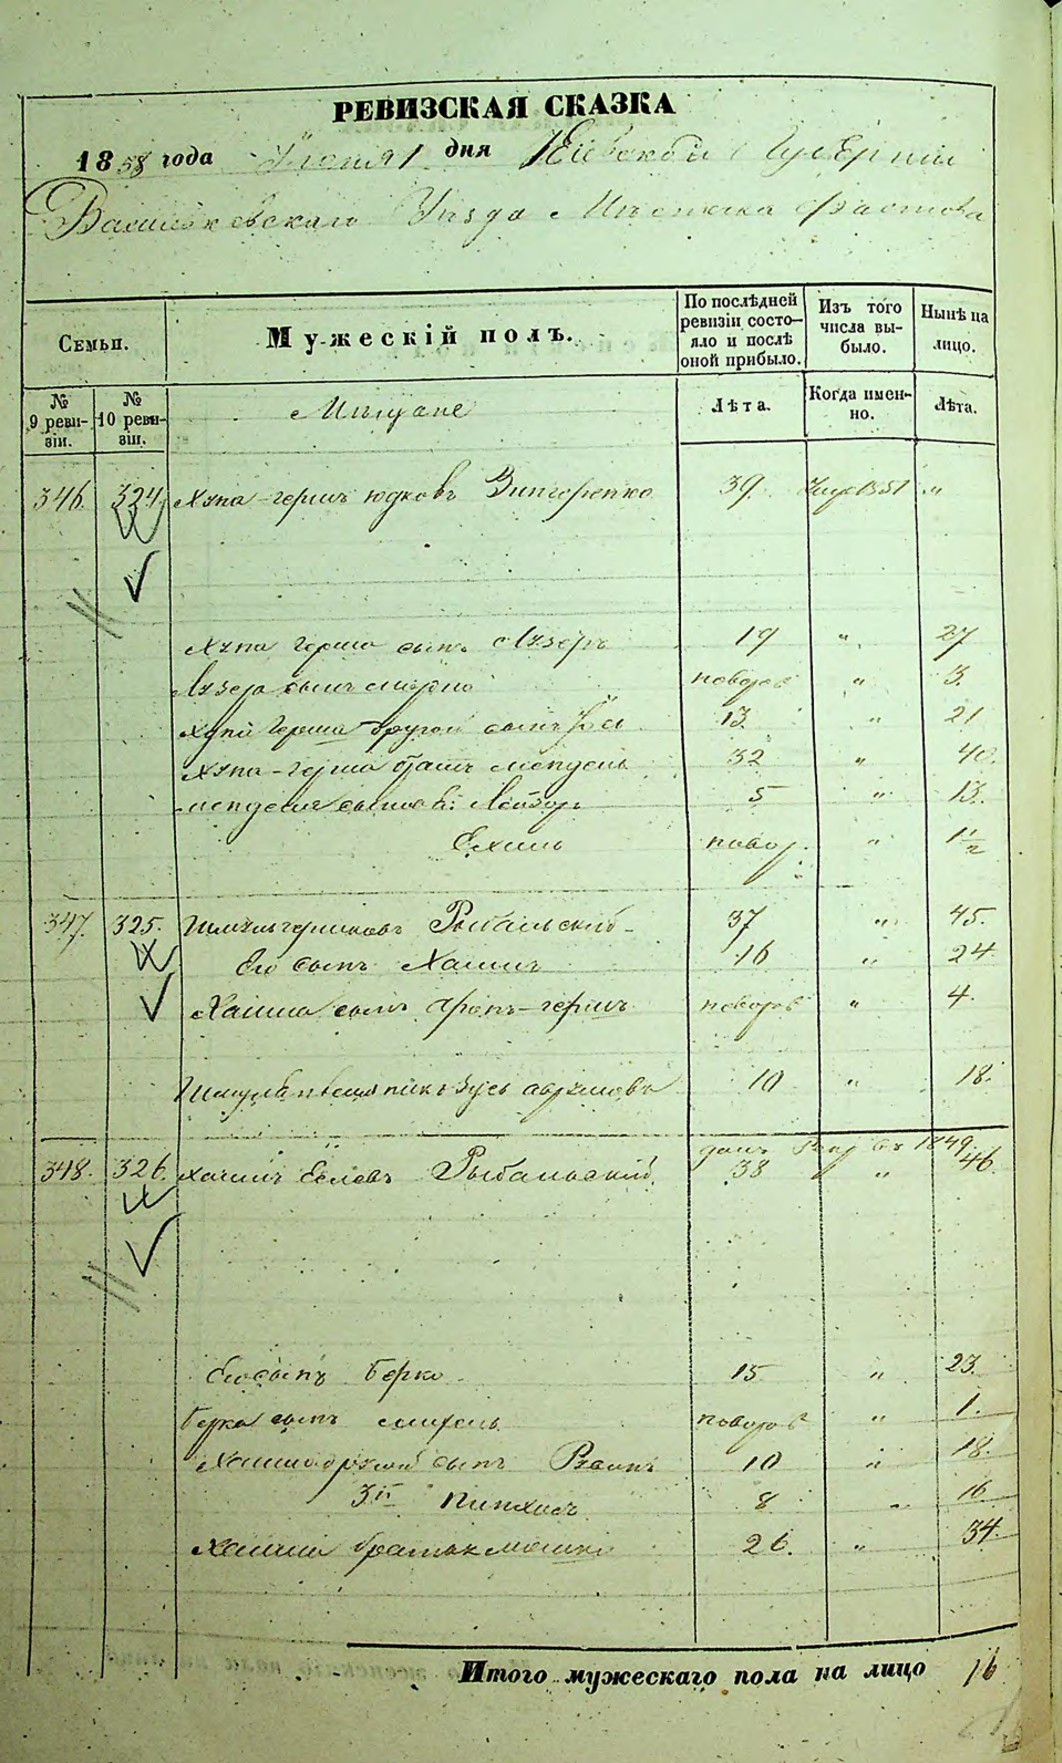 РЕВИЗСКАЯ СКАЗКА
1858 года Июня 1 дня Кіевской Губерніи
Васильковскаго Уѣзда Мѣстечка Фастова
Семьи.
Мужескій полъ.
По послѣдней ревизіи состо-яло и послѣ оной прибыло.
Изъ того числа вы-было.
Нынѣ на лицо.
№ 9 реви-зіи.
№ 10 реви-зіи.
Мѣщане
Лѣта.
Когда имен-но.
Лѣта.
346. 324. Хуна-Гершъ Юдковъ 39 1851 "
Хуна Герша сынъ Лузеръ 19 " 27
Лузера сынъ новорож " 3.
Хуны Герша другой сынъ 13 " 21
Хуна-Герша братъ Мендель 32 " 40.
Менделя сыновья: Лейзоръ 5 " 13.
Ехиль новор. " 1 1/2
347. 325. Рыбальскій 37 " 45.
Его сынъ Хаимъ 16 " 24
Хаима сынъ Аронъ-Гершъ новорож " 4.
Шмуля племянникъ Зусь Аврумовъ 10 " 18.
въ 1849.
348. 326. Хаимъ Рыбальскій 38 " 46.
Его сынъ Берко 15 " 23.
Берка сынъ новорож " 1.
Хаима другой сынъ 10 " 18.
3й Пинхасъ 8 " 16
Хаима братъ Мошко 26. " 34.
Итого мужескаго пола на лицо 16